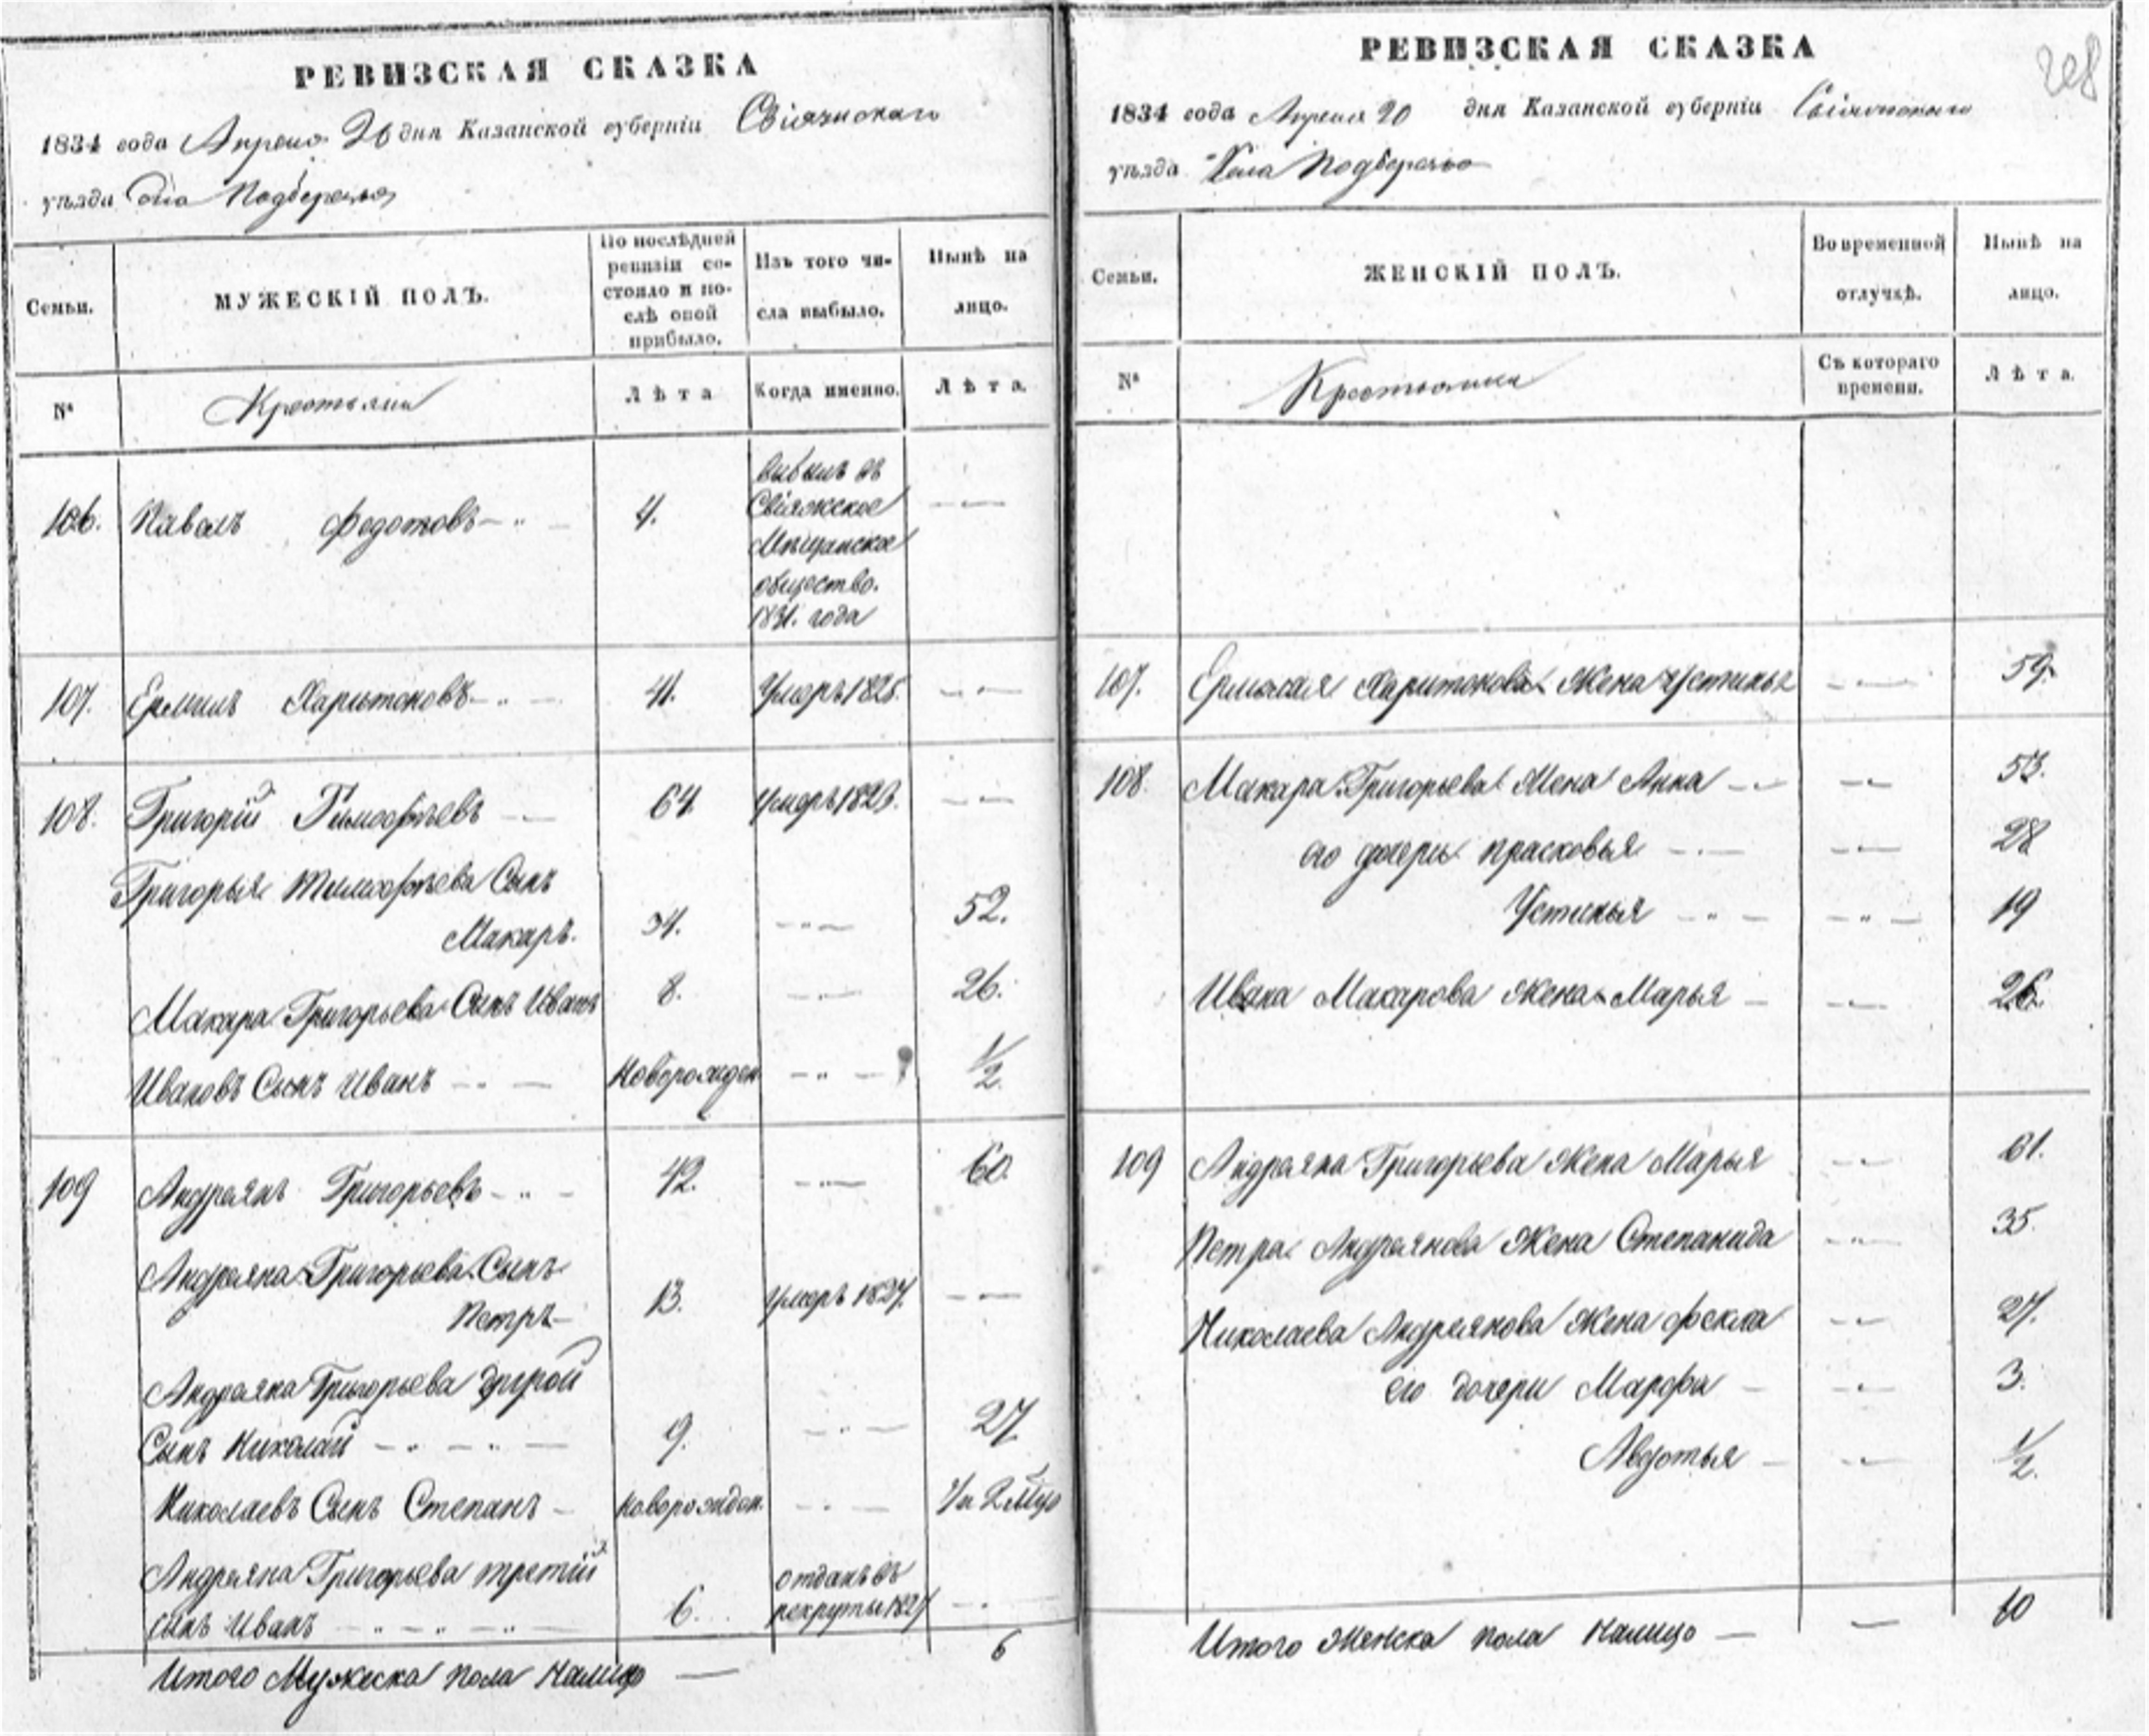 РЕВИЗСКАЯ СКАЗКА
1834 года Апреля 20 дня Казанской губерніи Свіяжскаго
уѣзда Подберезья
Семьи.
МУЖЕСКІЙ ПОЛЪ.
По послѣдней
ревизіи со-
стояло и по-
слѣ оной
прибыло.
Изъ того чи-
сла выбыло.
Нынѣ на
лицо.
№
Крестьяне
Лѣта
Когда именно.
Лѣта.
106. Павелъ Федотовъ 4.
выбылъ въ
Свіяжское
Мѣщанское
общество.
1831. года
107. Ермилъ Харитоновъ 41. Умеръ 1825.
108. Григорій Тимофѣевъ 64. умеръ 1823.
Григорья Тимофѣева Сынъ
Макаръ. 34. 52.
Макара Григорьева Сынъ Иванъ 8. 26.
Ивановъ Сынъ Иванъ Новорожден 1/2
109 Андреянъ Григорьевъ 42. 60.
Андреяна Григорьева Сынъ
Петръ 13. умеръ 1827.
Андреяна Григорьева другой
Сынъ Николай 9. 27
Николаевъ Сынъ Степанъ новорожден.
Андреяна Григорьева третій
сынъ Иванъ 6. отданъ въ
рекруты 1827
Итого Мужеска пола Налицо 6
РЕВИЗСКАЯ СКАЗКА
208
1834 года Апреля 20 дня Казанской губерніи Свіяжскаго
уѣзда Села Подберезья
Семьи.
ЖЕНСКІЙ ПОЛЪ.
Во временной
отлучкѣ.
Нынѣ на
лицо.
№
Крестьянки
Съ котораго
времени.
Лѣта.
107. Ермилая Харитонова Жена Устинья 59.
108. Макара Григорьева Жена Анна 53.
его дочери Прасковья 28
Устинья 19
Ивана Макарова Жена Марья 26.
109 Андреяна Григорьева Жена Марья 61.
Петра Андреянова Жена Степанида 35.
Николаева Андреянова Жена Фекла 27.
его дочери Марфа 3.
Авдотья 1/2.
Итого Женска пола Налицо 10